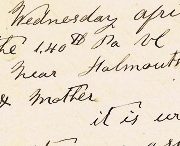 Wednesday apri
the 140th Pa Vl
near Falmouth
& Mother
it is